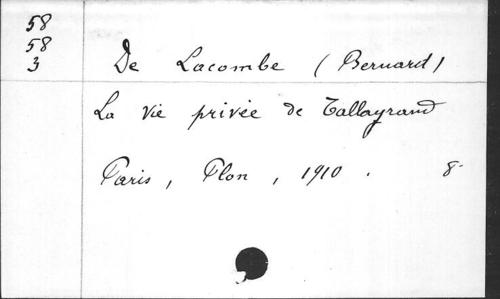 58
58
3
De Lacombe (Bernard)
La vie privée de Tallayrand
Paris, Plon, 1910. 8°